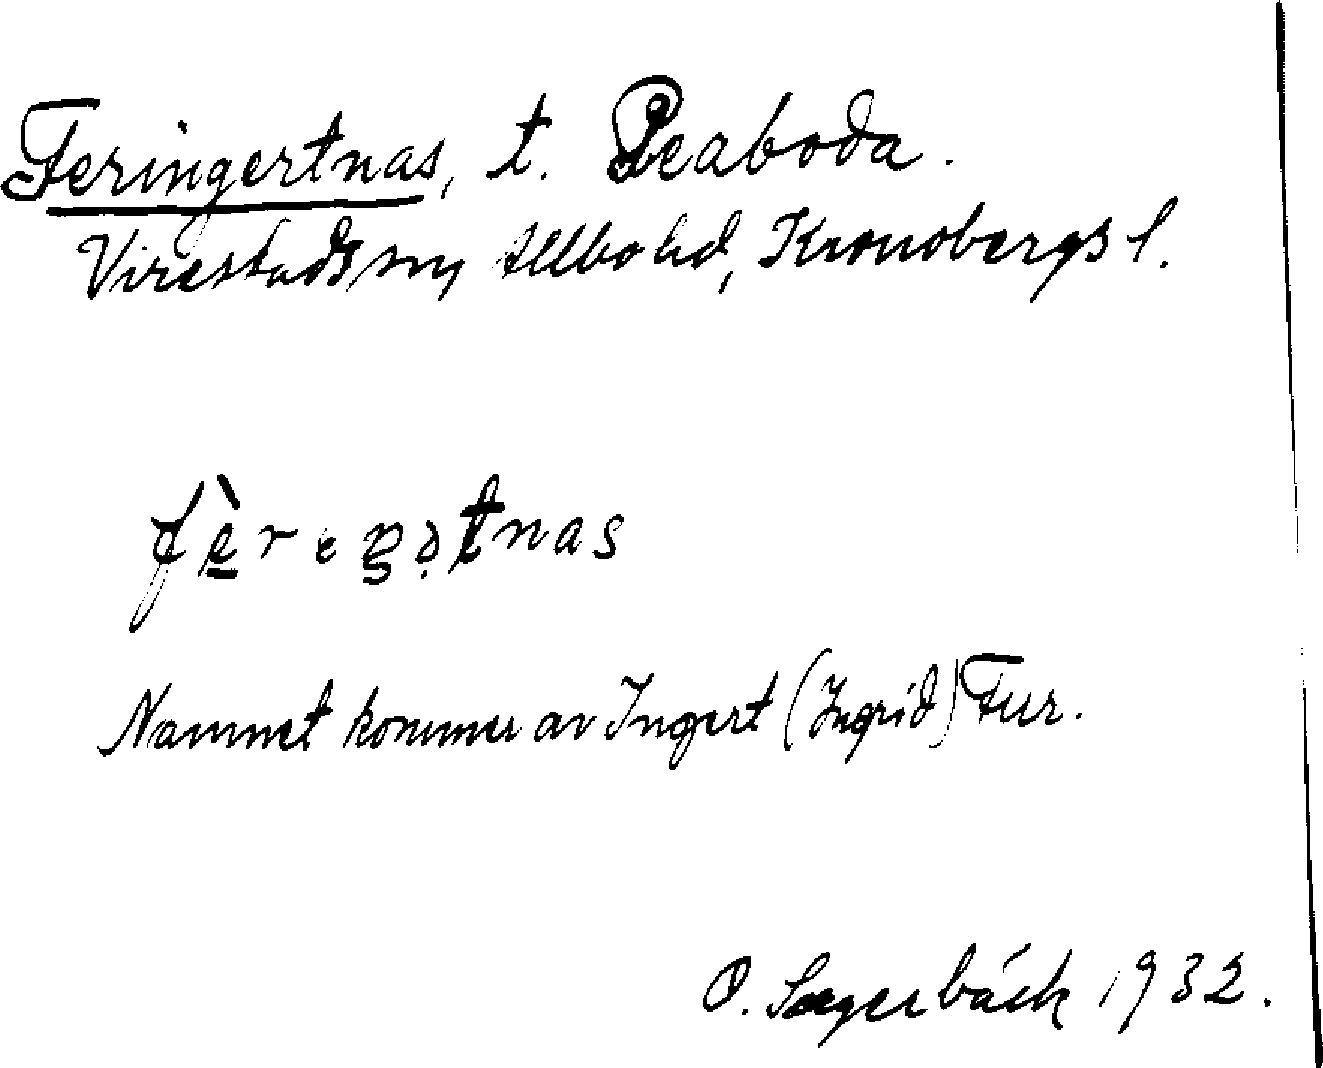 Feringertnas, t. Peaboda.
Virestads sn, Allbo hd, Kronobergs l.
fèreŋətnas
Namnet kommer av Ingert (Ingrid) Fur.
O. Sagerbäck 1932.